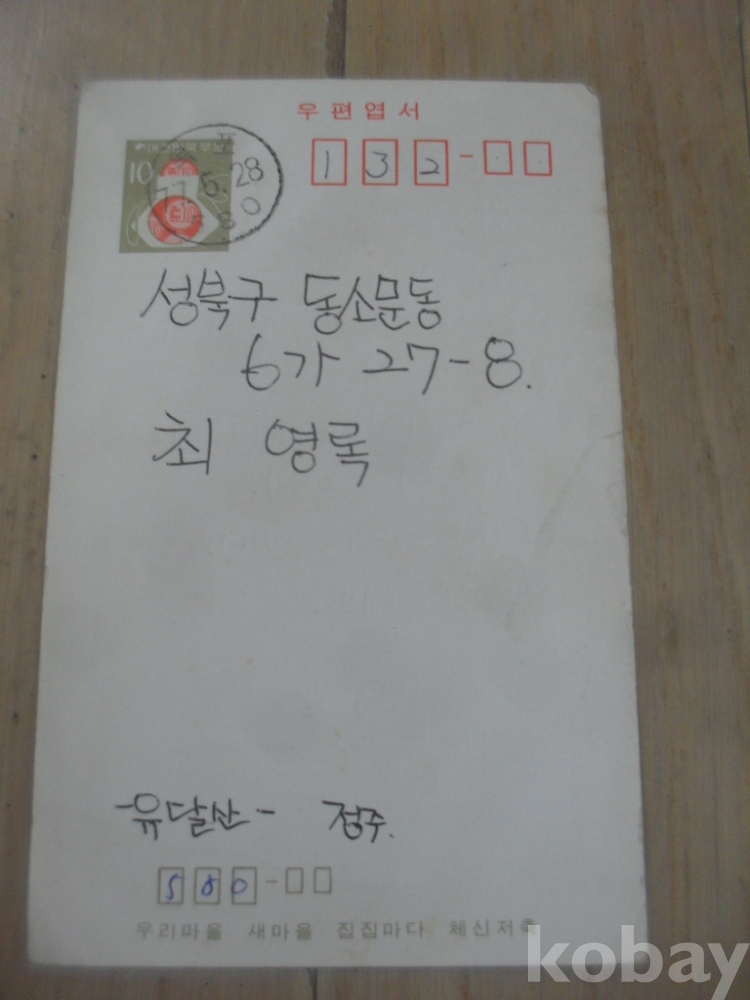 우편엽서
대한민국 우표
10
77.6.28
80
132-
성북구 동소문동
6가 27-8.
최 영록
-유달산- 정주.
580-
우리마을 새마을 집집마다 체신저축
kobay